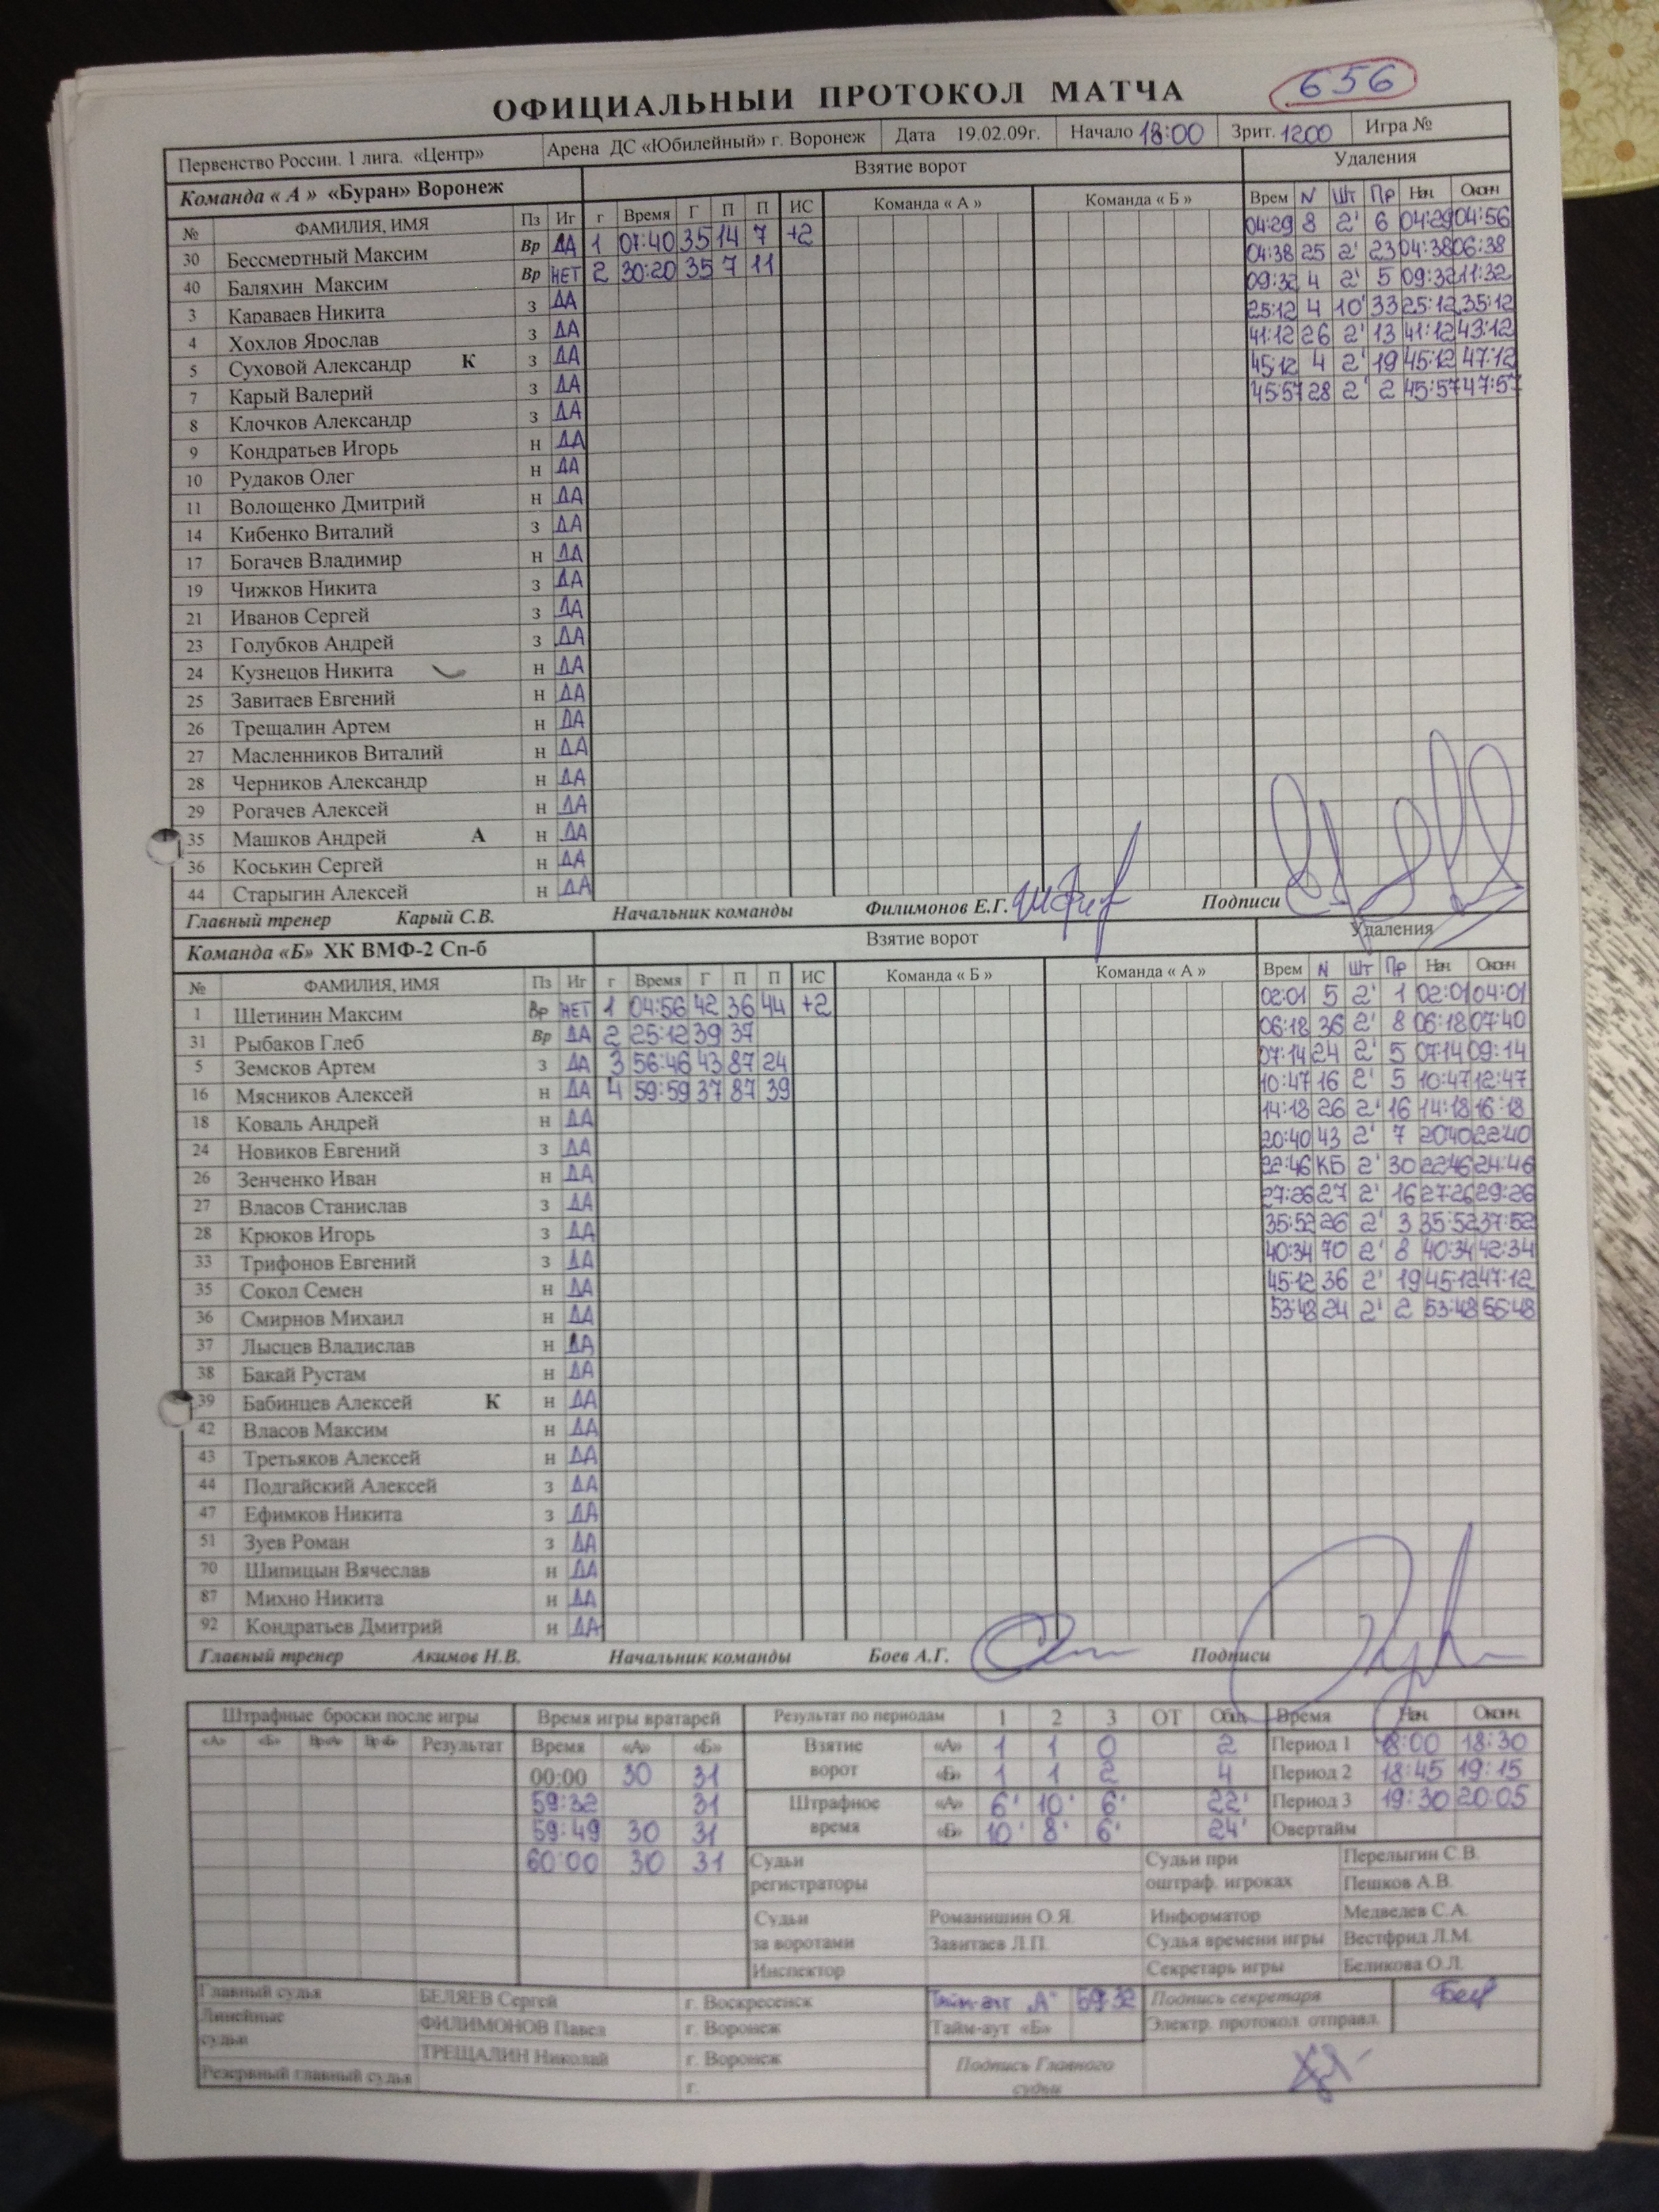 656
ОФИЦИАЛЬНЫЙ ПРОТОКОЛ МАТЧА
Первенство России. 1 лига. «Центр» Арена ДС «Юбилейный» г. Воронеж Дата 19.02.09г. Начало 18:00 Зрит. 1200 Игра №
Команда « А » «Буран» Воронеж Взятие ворот Удаления
№ ФАМИЛИЯ, ИМЯ Пз Иг г Время Г П П ИС Команда « А » Команда « Б » Врем N Шт Пр Нач Оконч
30 Бессмертный Максим Вр ДА 1 07:40 35 14 7 +2 04:29 8 2' 6 04:29 04:56
40 Баляхин Максим Вр НЕТ 2 30:20 35 7 11 04:38 25 2' 23 04:38 06:38
3 Караваев Никита з ДА 09:32 4 2' 5 09:32 11:32
4 Хохлов Ярослав з ДА 25:12 4 10' 33 25:12 35:12
5 Суховой Александр К з ДА 41:12 26 2' 13 41:12 43:12
7 Карый Валерий з ДА 45:12 4 2' 19 45:12 47:12
8 Клочков Александр з ДА 45:57 28 2' 2 45:57 47:57
9 Кондратьев Игорь н ДА
10 Рудаков Олег н ДА
11 Волощенко Дмитрий н ДА
14 Кибенко Виталий з ДА
17 Богачев Владимир н ДА
19 Чижков Никита з ДА
21 Иванов Сергей з ДА
23 Голубков Андрей з ДА
24 Кузнецов Никита н ДА
25 Завитаев Евгений н ДА
26 Трещалин Артем н ДА
27 Масленников Виталий н ДА
28 Черников Александр н ДА
29 Рогачев Алексей н ДА
35 Машков Андрей А н ДА
36 Коськин Сергей н ДА
44 Старыгин Алексей н ДА
Главный тренер Карый С.В. Начальник команды Филимонов Е.Г. Подписи
Команда «Б» ХК ВМФ-2 Сп-б Взятие ворот Удаления
№ ФАМИЛИЯ, ИМЯ Пз Иг г Время Г П П ИС Команда « Б » Команда « А » Врем N Шт Пр Нач Оконч
1 Щетинин Максим Вр НЕТ 1 04:56 42 36 44 +2 02:01 5 2' 1 02:01 04:01
31 Рыбаков Глеб Вр ДА 2 25:12 39 37 06:18 36 2' 8 06:18 07:40
5 Земсков Артем з ДА 3 56:46 43 87 24 07:14 24 2' 5 07:14 09:14
16 Мясников Алексей н ДА 4 59:59 37 87 39 10:47 16 2' 5 10:47 12:47
18 Коваль Андрей н ДА 14:18 26 2' 16 14:18 16:18
24 Новиков Евгений з ДА 20:40 43 2' 7 20:40 22:40
26 Зенченко Иван н ДА 22:46 КБ 2' 30 22:46 24:46
27 Власов Станислав з ДА 27:26 27 2' 16 27:26 29:26
28 Крюков Игорь з ДА 35:52 26 2' 3 35:52 37:52
33 Трифонов Евгений з ДА 40:34 70 2' 8 40:34 42:34
35 Сокол Семен н ДА 45:12 36 2' 19 45:12 47:12
36 Смирнов Михаил н ДА 53:48 24 2' 2 53:48 55:48
37 Лысцев Владислав н ДА
38 Бакай Рустам н ДА
39 Бабинцев Алексей К н ДА
42 Власов Максим н ДА
43 Третьяков Алексей н ДА
44 Подгайский Алексей з ДА
47 Ефимков Никита з ДА
51 Зуев Роман з ДА
70 Шипицын Вячеслав н ДА
87 Михно Никита н ДА
92 Кондратьев Дмитрий н ДА
Главный тренер Акимов Н.В. Начальник команды Боев А.Г. Подписи
Штрафные броски после игры Время игры вратарей Результат по периодам 1 2 3 ОТ Общ Время Нач. Оконч.
«А» «Б» Вр«А» Вр«Б» Результат Время «А» «Б» Взятие ворот «А» 1 1 0 2 Период 1 18:00 18:30
00:00 30 31 «Б» 1 1 2 4 Период 2 18:45 19:15
59:32 31 Штрафное время «А» 6' 10' 6' 22' Период 3 19:30 20:05
59:49 30 31 «Б» 10' 8' 6' 24' Овертайм
60:00 30 31 Судьи регистраторы Судьи при оштраф. игроках Перелыгин С.В.
Пешков А.В.
Судьи за воротами Романишин О.Я. Информатор Медведев С.А.
Завитаев Л.П. Судья времени игры Вестфрид Л.М.
Инспектор Секретарь игры Беликова О.Л.
Главный судья БЕЛЯЕВ Сергей г. Воскресенск Тайм-аут „А" 59:32 Подпись секретаря
Линейные судьи ФИЛИМОНОВ Павел г. Воронеж Тайм-аут «Б» Электр. протокол отправл.
ТРЕЩАЛИН Николай г. Воронеж Подпись Главного судьи
Резервный главный судья г.